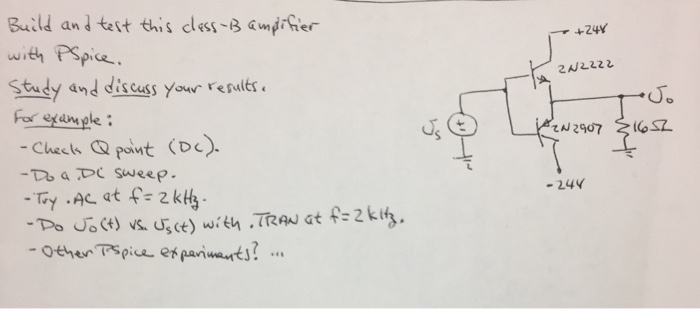 Build and test this class-B amplifier
with PSpice.
Study and discuss your results.
For example:
- Check Q point (DC).
- Do a .DC sweep.
- Try .AC at f=2kHz.
- Do υo(t) vs. υs(t) with .TRAN at f=2kHz.
- Other PSpice experiments? ...
+24V
2N2222
υo
υs
2N2907
16Ω
-24V